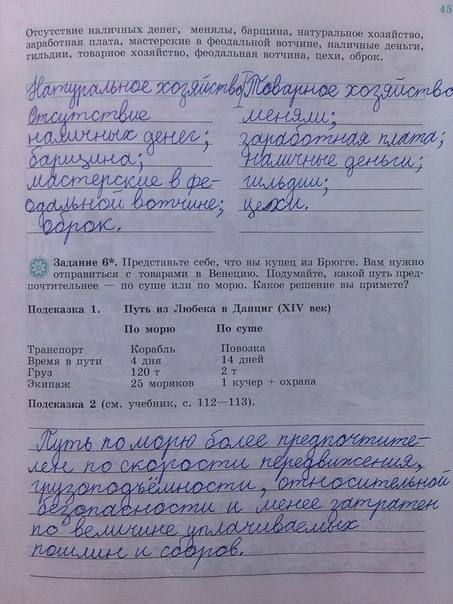 45
Отсутствие наличных денег, менялы, барщина, натуральное хозяйство,
заработная плата, мастерские в феодальной вотчине, наличные деньги,
гильдии, товарное хозяйство, феодальная вотчина, цехи, оброк.
Натуральное хозяйство Товарное хозяйство
Отсутствие
наличных денег;
барщина;
мастерские в фе-
одальной вотчине;
оброк.
меняли;
заработная плата;
наличные деньги;
гильдии;
цехи.
Задание 6*. Представьте себе, что вы купец из Брюгге. Вам нужно
отправиться с товарами в Венецию. Подумайте, какой путь пред-
почтительнее — по суше или по морю. Какое решение вы примете?
Подсказка 1. Путь из Любека в Данциг (XIV век)
По морю По суше
Транспорт Корабль Повозка
Время в пути 4 дня 14 дней
Груз 120 т 2 т
Экипаж 25 моряков 1 кучер + охрана
Подсказка 2 (см. учебник, с. 112—113).
Путь по морю более предпочтите-
лен по скорости передвижения,
грузоподъёмности, относительной
безопасности и менее затратен
по величине уплачиваемых
пошлин и сборов.